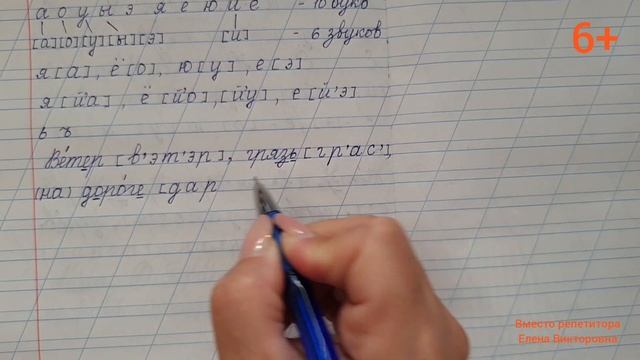 а о у ы э я е ю и ё - 10 букв
[а][о][у][ы][э] [и] - 6 звуков
6+
я [а], ё [о], ю [у], е [э]
я [й'а], ё [й'о], [й'у], е [й'э]
ь ъ
Ве́тер [в'эт'эр], грязь [гр'ас'],
(на) доро́ге [дар
Вместо репетитора
Елена Викторовна